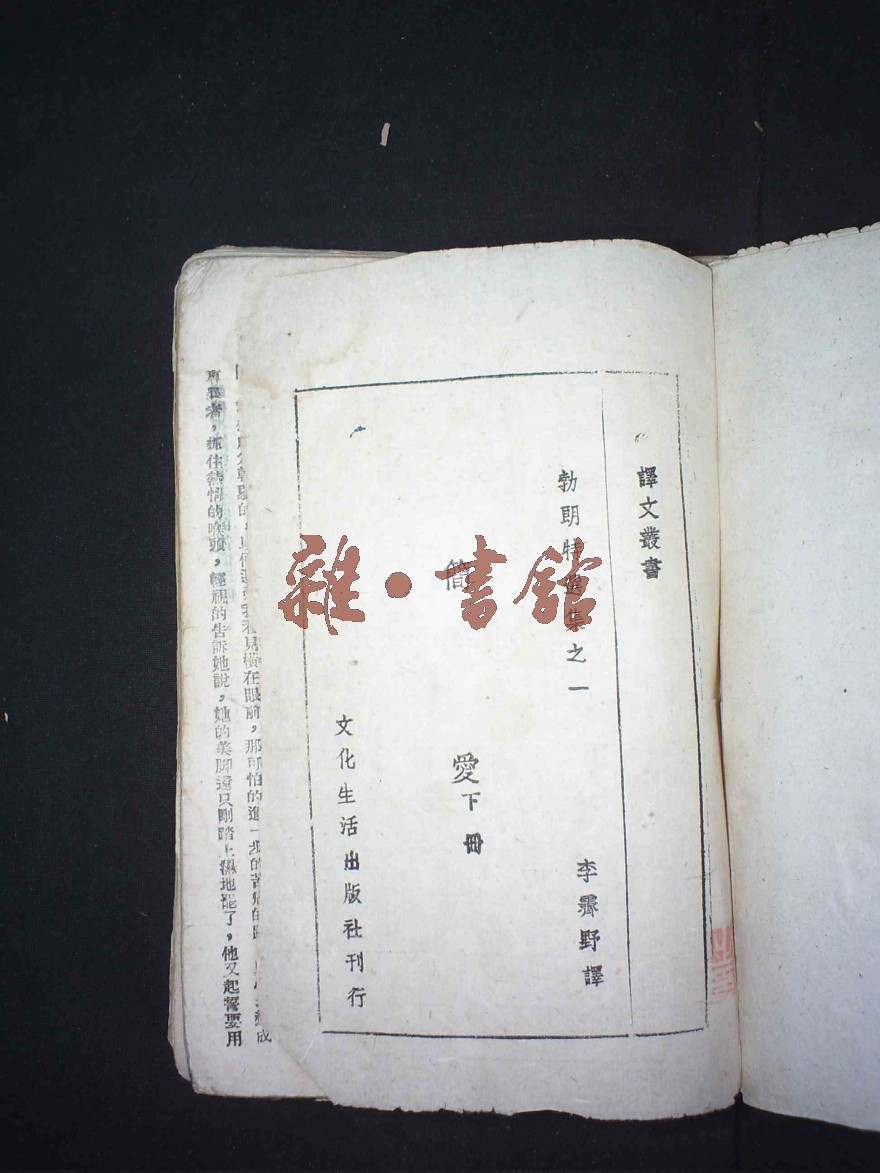 譯文叢書
勃朗特選集之一
李霽野譯
簡
愛下冊
文化生活出版社刊行
雜·書館
見橫在眼前，那可怕的進一步的苦
抓住熱情的喉頭，輕視的告訴她說，她的美脚還只剛踏上濕地罷了，他又起誓要用